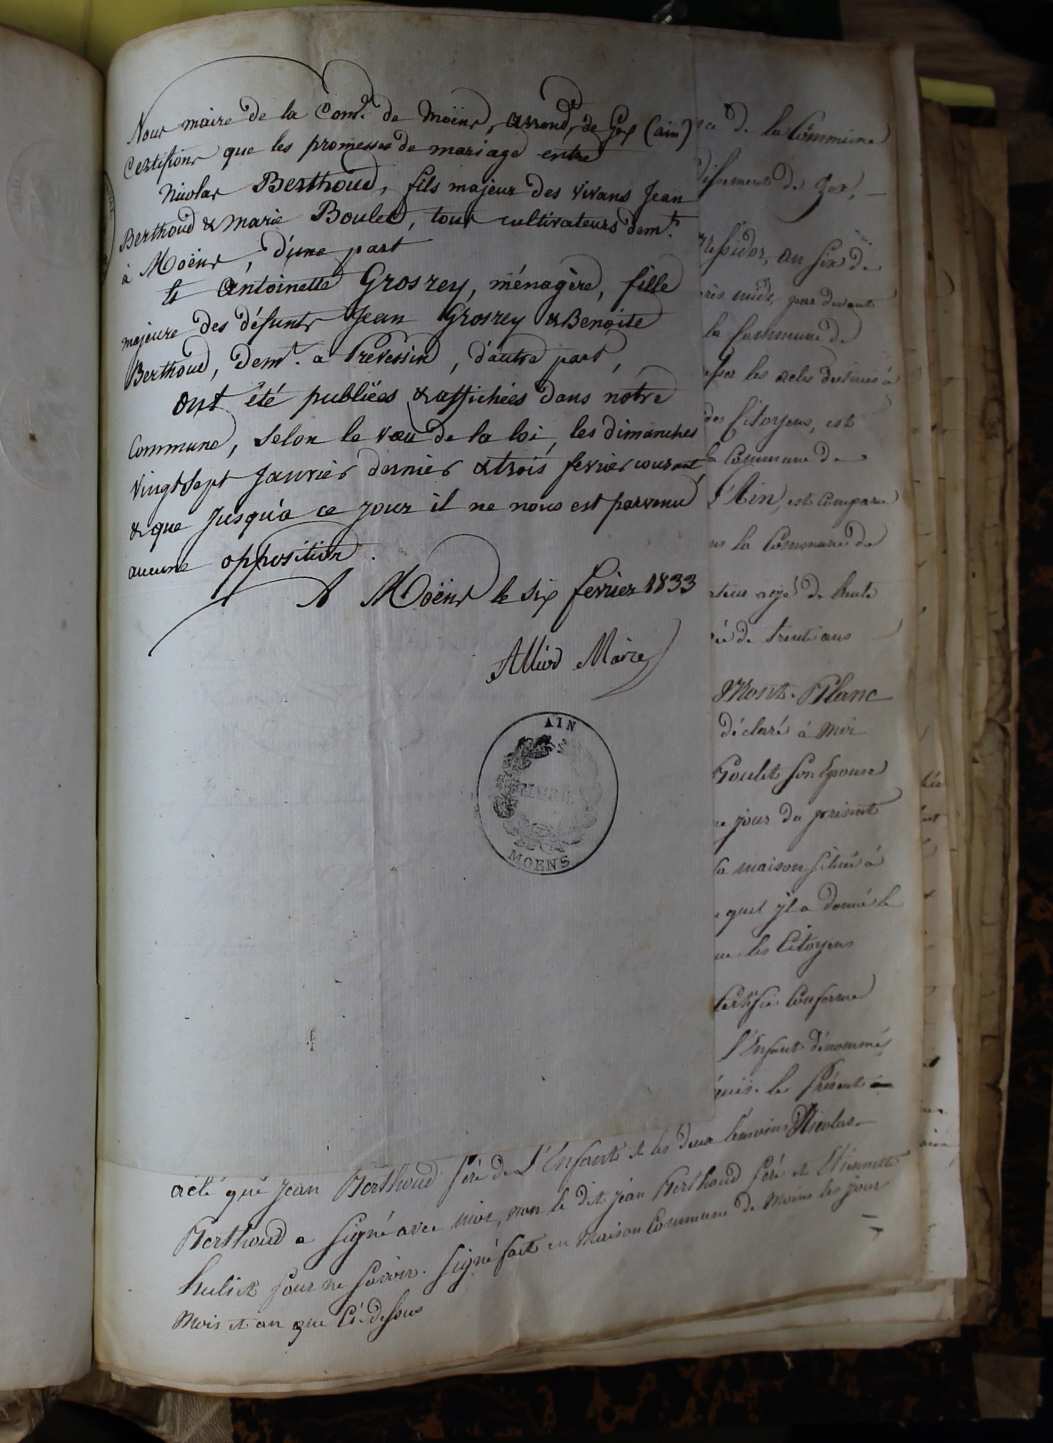 Nous maire de la Com.e de Moëns, arrond.t de Gex (ain)
Certifions que les promesses de mariage entre
Nicolas Berthoud, fils majeur des vivans Jean
Berthoud & marie Boulet, tous cultivateurs dem.t
à Moëns, d'une part
Et Antoinette Grosrey, ménagère, fille
majeure des défunts Jean Grosrey & Benoite
Berthoud, dem.t a Prevessin, d'autre part,
ont été publiées & affichées dans notre
Commune, selon le vœu de la loi, les dimanches
vingt sept Janvier dernier & trois fevrier courant
& que jusqu'a ce jour il ne nous est parvenu
aucune opposition.
A Moëns le six fevrier 1833
Allier Maire
AIN
MAIRIE
MOENS
de la Commune
de Gex,
an six de
midi, par devant
la Commune de
les actes destinés à
des Citoyens, est
Commune de
l'Ain, est comparu
la Commune de
agé de
de trente ans
Mont-Blanc
déclaré à moi
Boulet son Epouse
jour du présent
maison située à
quel il a donné le
les Citoyens
Certifié Conforme
l'Enfant dénommé,
le Présent
acte que Jean Berthoud Père de l'Enfant et les deux témoins Nicolas
Berthoud a Signé avec moi, non le dit Jean Berthoud Père et Etiennette
pour ne savoir. Signé fait en Maison Commune de Moins les jour
Mois et an que Ci-dessus